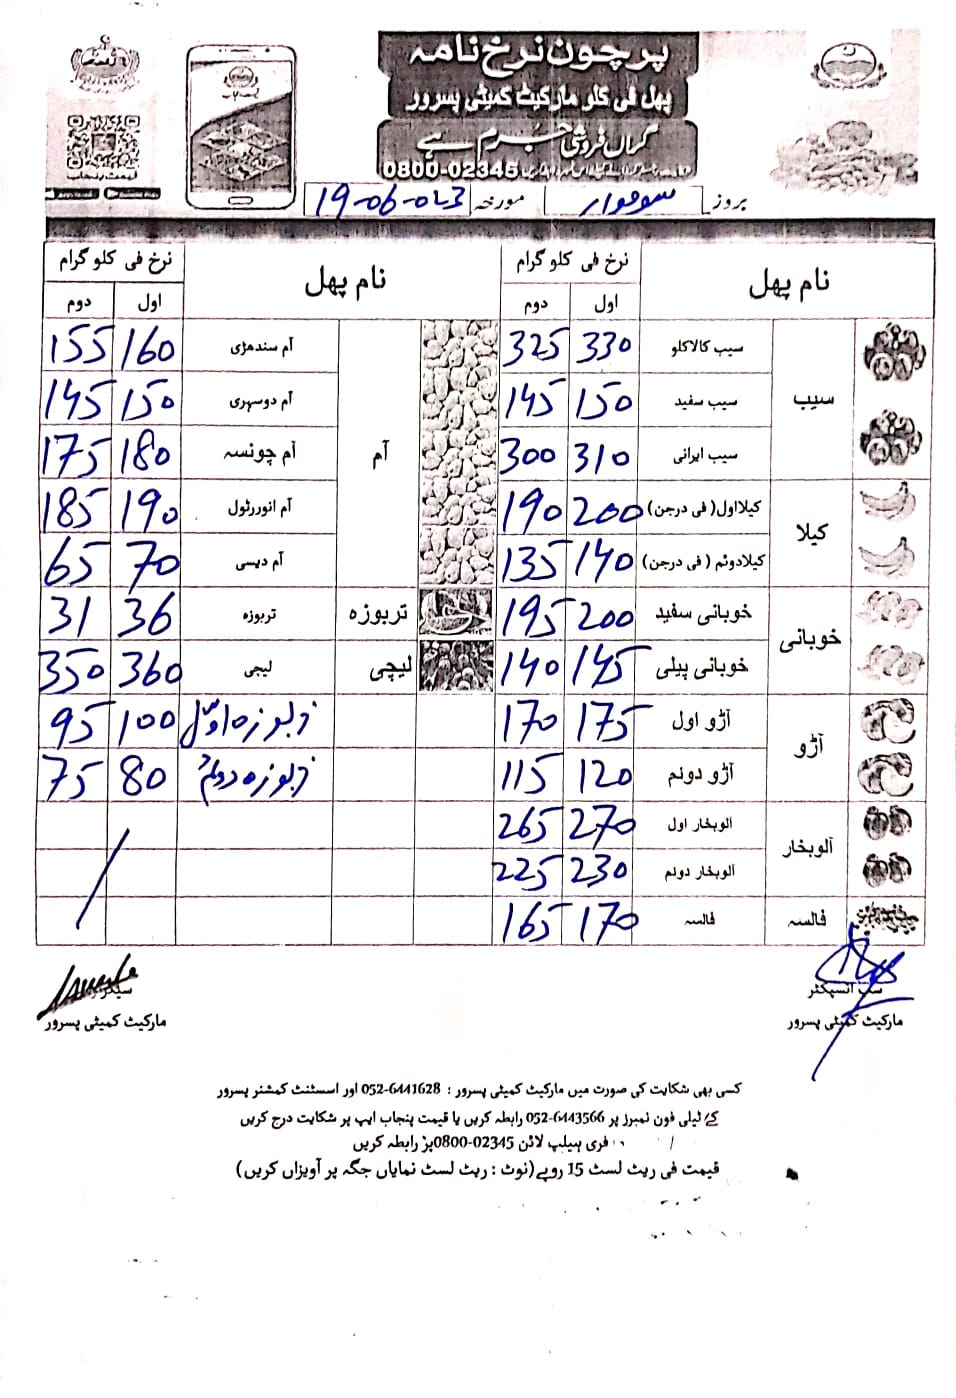 پرچون نرخ نامہ
پھل فی کلو مارکیٹ کمیٹی پسرور
گراں فروشی جرم ہے
0800-02345
قیمت پنجاب
بروز سوموار مورخہ 19-06-023
نام پھل نرخ فی کلو گرام نام پھل نرخ فی کلو گرام
اول دوم اول دوم
سیب سیب کالاکلو 330 325 آم آم سندھڑی 160 155
سیب سفید 150 145 آم دوسہری 150 145
سیب ایرانی 310 300 آم چونسہ 180 175
کیلا کیلااول( فی درجن) 200 190 آم انوررٹول 190 185
کیلادوئم ( فی درجن) 140 135 آم دیسی 70 65
خوبانی خوبانی سفید 200 195 تربوزہ تربوزہ 36 31
خوبانی پیلی 145 140 لیچی لیجی 360 350
آڑو آڑو اول 175 170 خربوزہ اول 100 95
آڑو دوئم 120 115 خربوزہ دوئم 80 75
آلوبخار الوبخار اول 270 265
الوبخار دوئم 230 225
فالسہ فالسہ 170 165
سب انسپکٹر
مارکیٹ کمیٹی پسرور
سیکرٹری
مارکیٹ کمیٹی پسرور
کسی بھی شکایت کی صورت میں مارکیٹ کمیٹی پسرور : 052-6441628 اور اسسٹنٹ کمشنر پسرور
کے ٹیلی فون نمبرز پر 052-6443566 رابطہ کریں یا قیمت پنجاب ایپ پر شکایت درج کریں
فری ہیلپ لائن 0800-02345پر رابطہ کریں
قیمت فی ریٹ لسٹ 15 روپے(نوٹ : ریٹ لسٹ نمایاں جگہ پر آویزاں کریں)